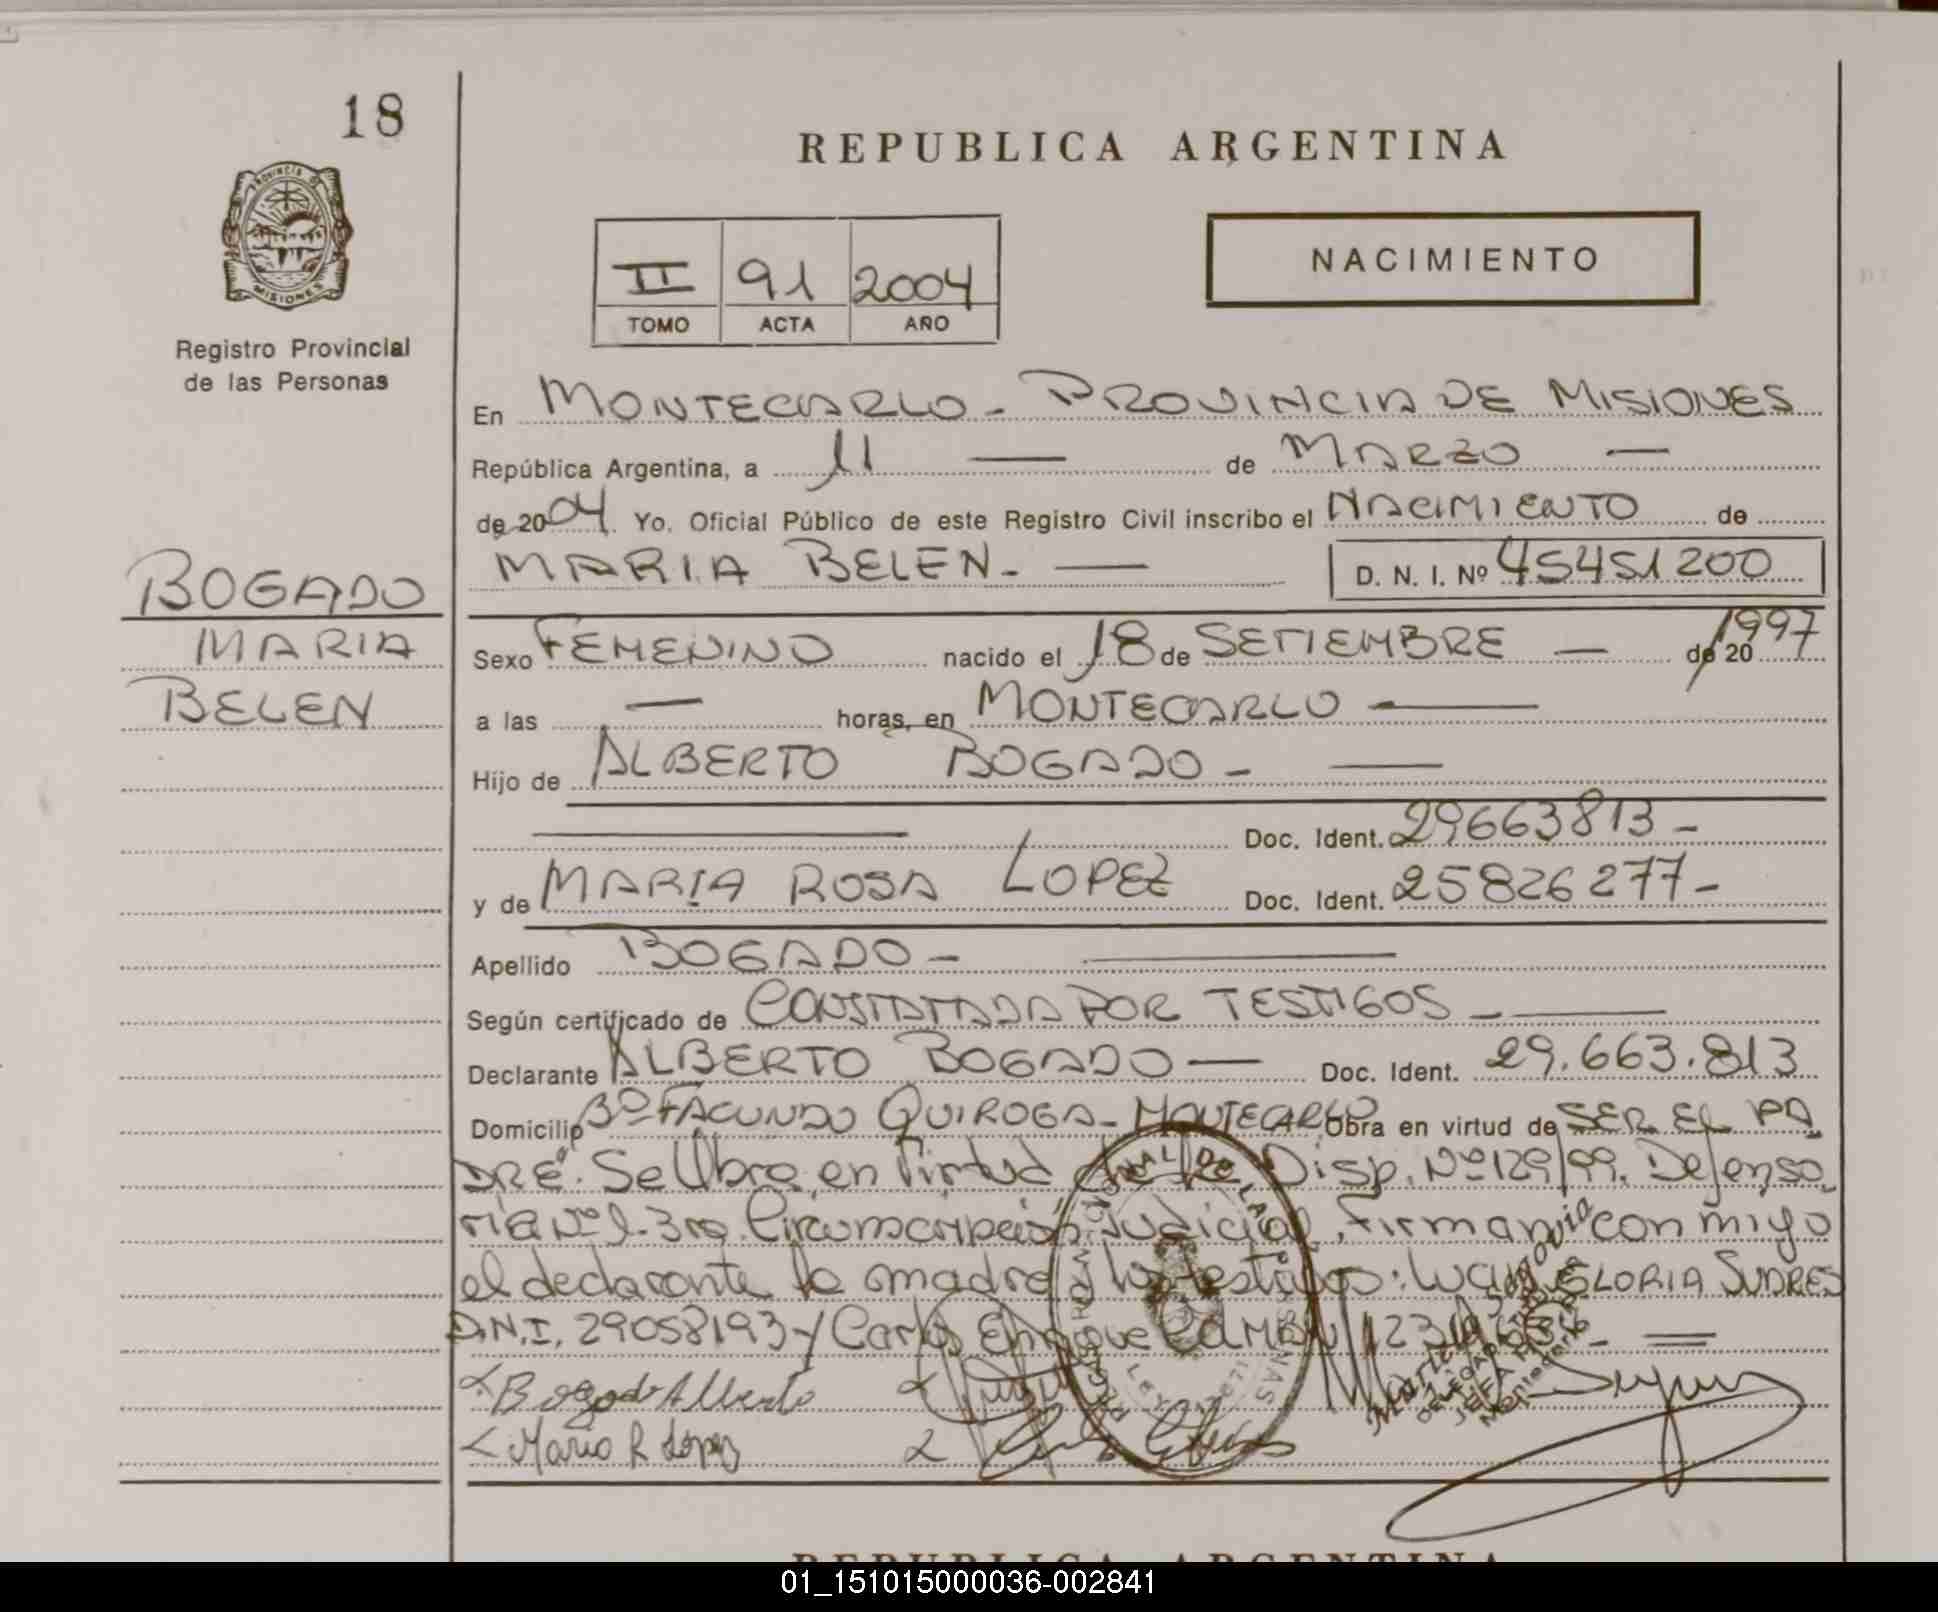 18
REPUBLICA ARGENTINA
PROVINCIA DE
MISIONES
Registro Provincial
de las Personas
II 91 2004
TOMO ACTA AÑO
NACIMIENTO
En MONTECARLO - PROVINCIA DE MISIONES
República Argentina, a 11 — de MARZO —
de 2004. Yo, Oficial Público de este Registro Civil inscribo el NACIMIENTO de
MARIA BELEN. — D. N. I. Nº 45451200
BOGADO
MARIA
BELEN
Sexo FEMENINO nacido el 18 de SETIEMBRE — de 20 1997
a las — horas, en MONTECARLO —
Hijo de ALBERTO BOGADO - —
— Doc. Ident. 29663813 -
y de MARIA ROSA LOPEZ Doc. Ident. 25826277 -
Apellido BOGADO - —
Según certificado de CONSTATADA POR TESTIGOS - —
Declarante ALBERTO BOGADO — Doc. Ident. 29.663.813
Domicilio Bº FACUNDO QUIROGA - MONTECARLO Obra en virtud de SER EL PA
DRE. Se Obra en Virtud de la Disp. Nº 129/99. Defenso
ria Nº 1-3ra. Circunscripción Judicial, Firman con migo
el declarante la madre y los testigos: Lucia GLORIA SUARES
D.N.I. 29058193 y Carlos Enrique
Bogado Alberto
Maria R Lopez
REPUBLICA ARGENTINA
01_151015000036-002841